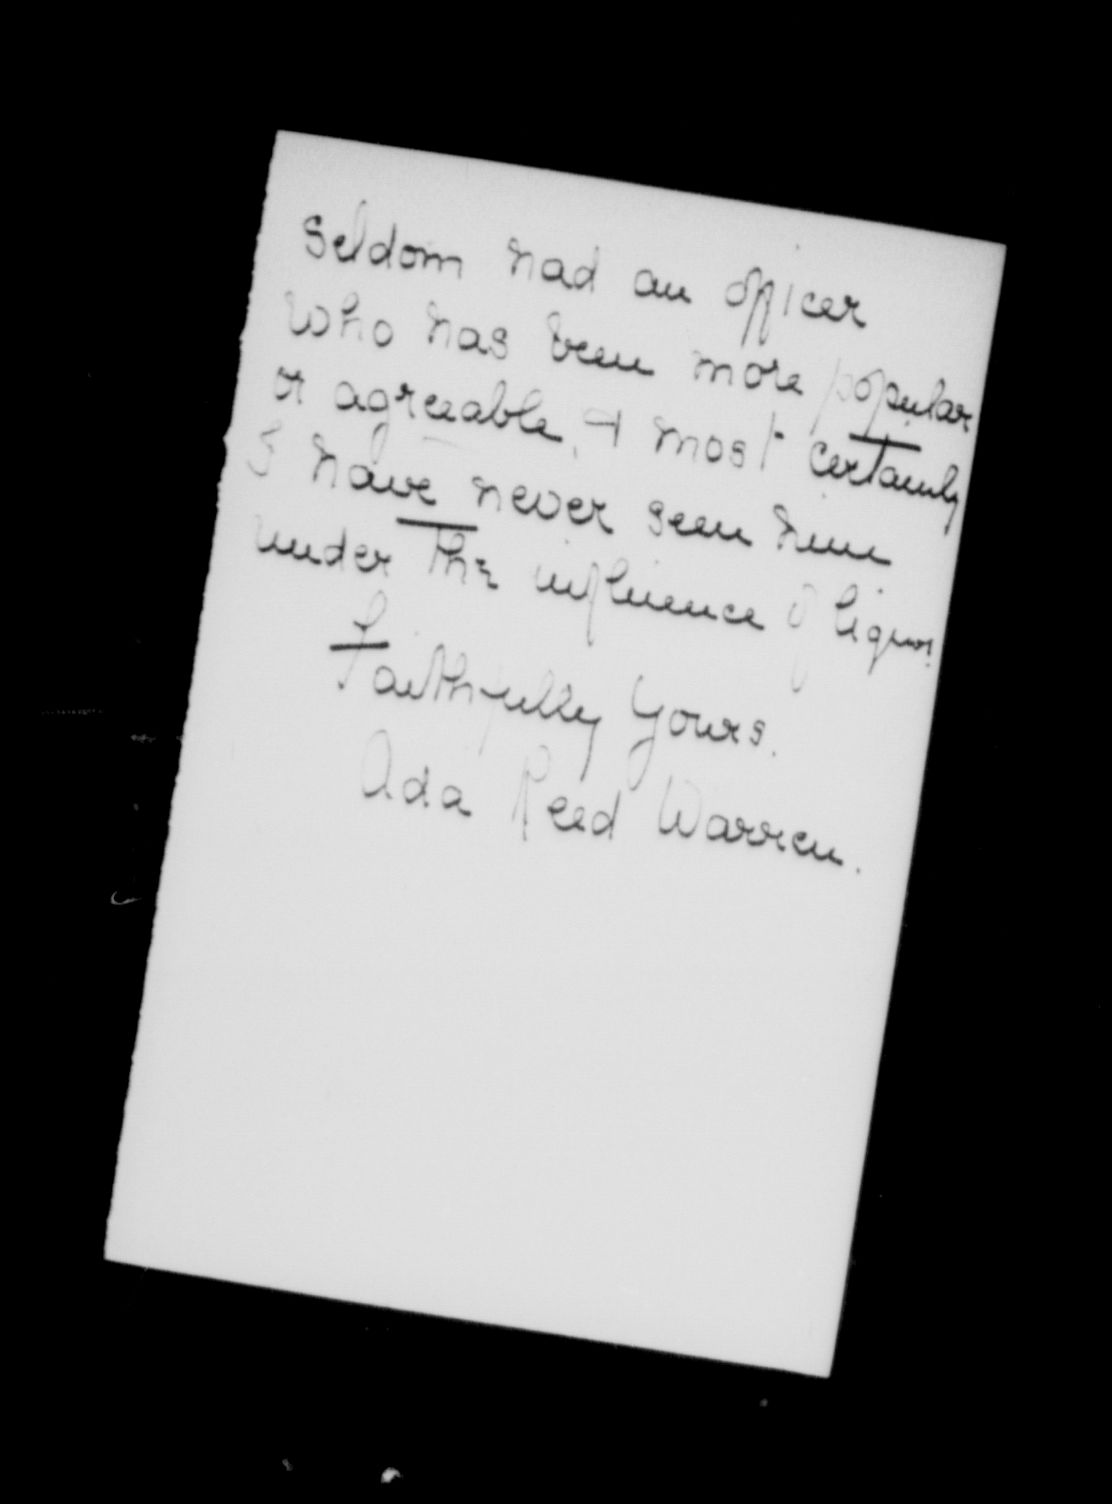 Seldom had an officer
who has been more popular
or agreeable, & most certainly
I have never seen him
under the influence of liquor.
Faithfully Yours.
Ada Reed Warren.